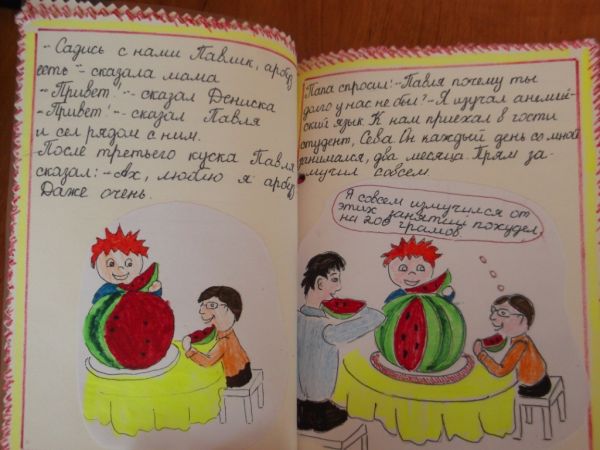 -Садись с нами Павлик, арбуз
есть"- сказала мама
-"Привет!"- сказал Дениска
-"Привет!"- сказал Павля
и сел рядом с ним.
-После третьего куска Павля
сказал: -Ах, люблю я арбуз
Даже очень.
Папа спросил:-Павля почему ты
долго у нас не был?-Я изучал англий-
ский язык. К нам приехал в гости
студент, Сева. Он каждый день со мной
занимался, два месяца. Прям за-
мучил совсем
Я совсем измучился от
этих занятий похудел
на 200 грамов